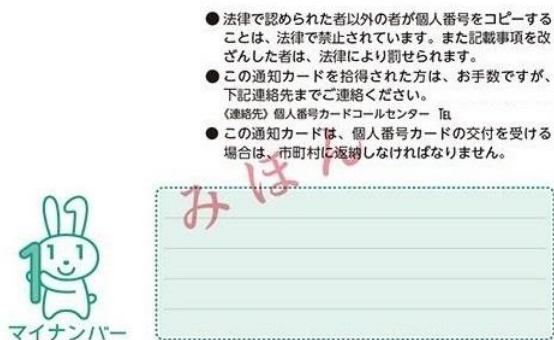 ● 法律で認められた者以外の者が個人番号をコピーする
ことは、法律で禁止されています。また記載事項を改
ざんした者は、法律により罰せられます。
● この通知カードを拾得された方は、お手数ですが、
下記連絡先までご連絡ください。
《連絡先》個人番号カードコールセンター ℡
● この通知カードは、個人番号カードの交付を受ける
場合は、市町村に返納しなければなりません。
みほん
1
1 1
マイナンバー